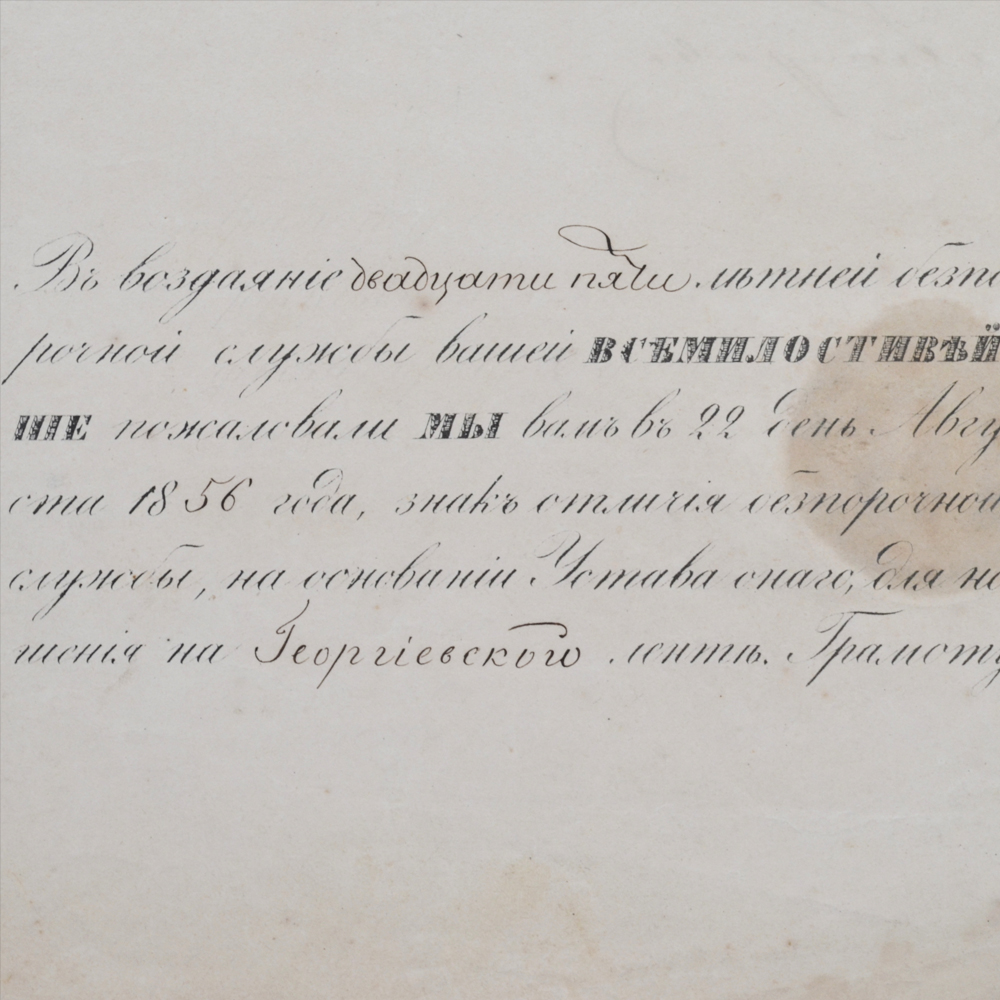 Въ воздаяніе двадцати пяти лѣтней безпо
рочной службы вашей ВСЕМИЛОСТИВѢЙ
ШЕ пожаловали МЫ вамъ въ 22 день Авгу
ста 1856 года, знакъ отличія безпорочной
службы, на основаніи Устава онаго, для но
шенія на Георгіевского лентѣ. Грамоту